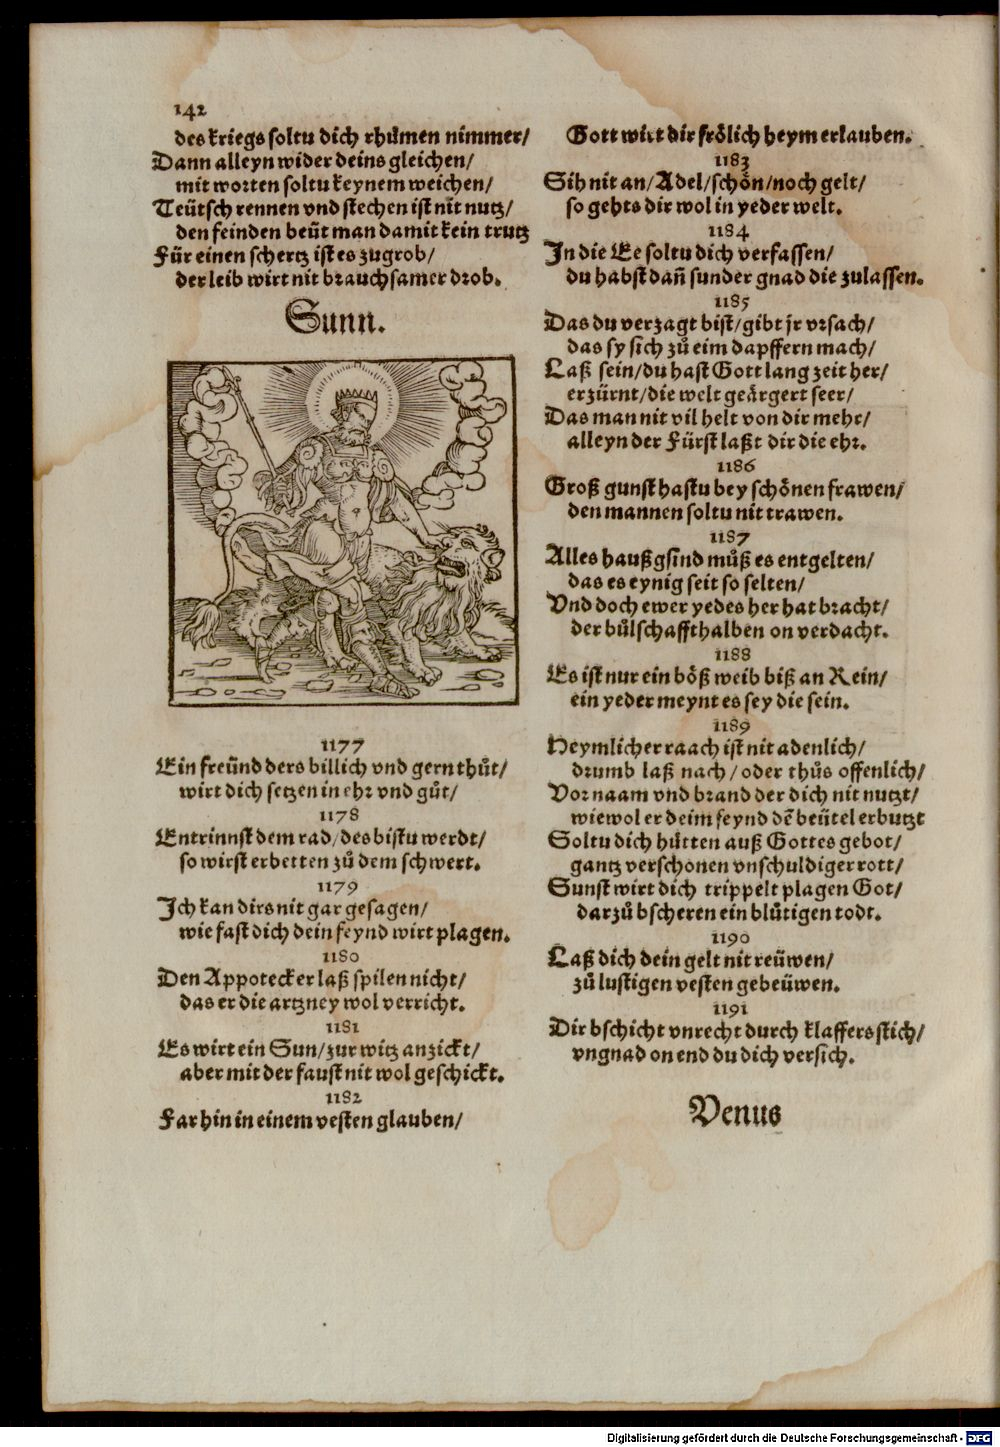 142
des kriegs soltu dich rhůmen nimmer/
Dann alleyn wider deins gleichen/
mit worten soltu keynem weichen/
Teütsch rennen vnd stechen ist nit nutz/
den feinden beüt man damit kein trutz
Für einen schertz ist es zugrob/
der leib wirt nit brauchsamer drob.
Sunn.
1177
Ein freünd ders billich vnd gern thůt/
wirt dich setzen in ehr vnd gůt/
1178
Entrinnst dem rad/des bistu werdt/
so wirst erbetten zů dem schwert.
1179
Ich kan dirs nit gar gesagen/
wie fast dich dein feynd wirt plagen.
1180
Den Appotecker laß spilen nicht/
das er die artzney wol verricht.
1181
Es wirt ein Sun/zur witz anzickt/
aber mit der faust nit wol geschickt.
1182
Far hin in einem vesten glauben/
Gott wirt dir frölich heym erlauben.
1183
Sih nit an/Adel/schön/noch gelt/
so gehts dir wol in yeder welt.
1184
In die Ee soltu dich verfassen/
du habst dañ sunder gnad die zulassen.
1185
Das du verzagt bist/gibt jr vrsach/
das sy sich zů eim dapffern mach/
Laß sein/du hast Gott lang zeit her/
erzürnt/die welt geärgert seer/
Das man nit vil helt von dir mehr/
alleyn der Fürst laßt dir die ehr.
1186
Groß gunst hastu bey schönen frawen/
den mannen soltu nit trawen.
1187
Alles haußgsind můß es entgelten/
das es eynig seit so selten/
Vnd doch ewer yedes her hat bracht/
der bůlschafft halben on verdacht.
1188
Es ist nur ein böß weib biß an Rein/
ein yeder meynt es sey die sein.
1189
Heymlicher raach ist nit adenlich/
drumb laß nach/oder thůs offenlich/
Vor naam vnd brand der dich nit nutzt/
wiewol er deim feynd dē beütel erbutzt
Soltu dich hůtten auß Gottes gebot/
gantz verschonen vnschuldiger rott/
Sunst wirt dich trippelt plagen Got/
darzů bscheren ein blůtigen todt.
1190
Laß dich dein gelt nit reüwen/
zů lustigen vesten gebeüwen.
1191
Dir bschicht vnrecht durch klaffers stich/
vngnad on end du dich versich.
Venus
Digitalisierung gefördert durch die Deutsche Forschungsgemeinschaft - DFG